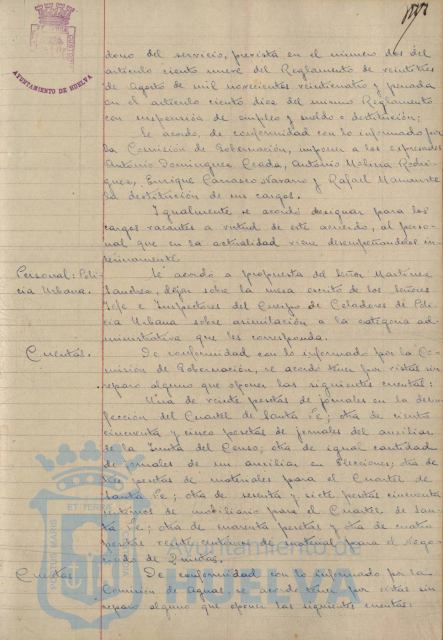 AYUNTAMIENTO DE HUELVA
dono del servicio, prevista en el número dos del
artículo ciento nueve del Reglamento de veintitres
de Agosto de mil novecientos veinticuatro y penada
en el artículo ciento diez del mismo Reglamento
con suspensión de empleo y sueldo o destitución;
Se acordó, de conformidad con lo informado por
la Comisión de Gobernación, imponer a los expresados
Antonio Dominguez Ceada, Antonio Molina Rodri-
guez, Enrique Carrasco Navarro y Rafael
la destitución de sus cargos.
Igualmente se acordó designar para los
cargos vacantes a virtud de este acuerdo, al perso-
nal que en la actualidad viene desempeñandolos in-
terinamente.
Personal: Poli-
cia Urbana.
Se acordó a propuesta del Señor Martinez
Sanchez, dejar sobre la mesa escrito de los Señores
Jefe e Inspectores del Cuerpo de Celadores de Poli-
cia Urbana sobre asimilación a la categoria ad-
ministrativa que les corresponda.
Cuentas.
De conformidad con lo informado por la Co-
misión de Gobernación, se acordó tener por vistas sin
reparo alguno que oponer las siguientes cuentas:
Una de veinte pesetas de jornales en la desin-
fección del Cuartel de Santa Fe; otra de ciento
cincuenta y cinco pesetas de jornales del auxiliar
de la Junta del Censo; otra de igual cantidad
de jornales de un auxiliar en Elecciones; otra de
seis pesetas de materiales para el Cuartel de
Santa Fe; otra de setenta y siete pesetas cincuenta
céntimos de mobiliario para el Cuartel de San-
ta Fe; otra de cuarenta pesetas y otra de cuatro
pesetas veinte céntimos de material para el Nego-
ciado de Quintas.
Cuentas
De conformidad con lo informado por la
Comisión de Aguas, se acordó tener por vistas sin
reparo alguno que oponer las siguientes cuentas:
PORTUS MARIS ET TERRAE
Ayuntamiento de
HUELVA